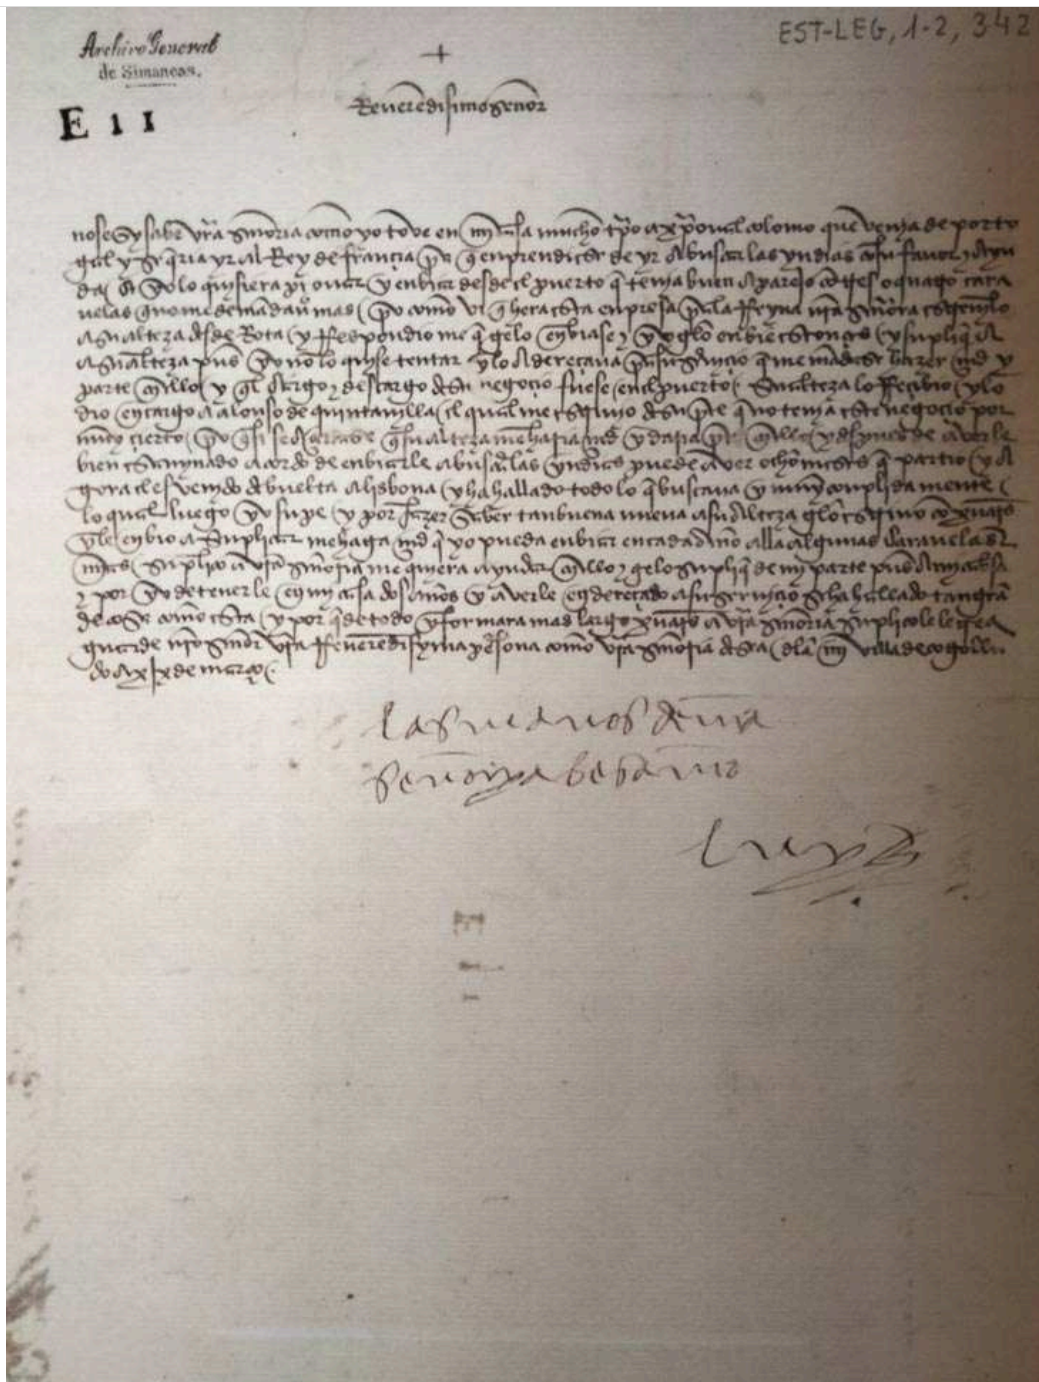 EST-LEG, 1-2, 342
Archivo General
de Simancas.
E 1 1
+
Reuerēdisimo señor
no se sy sabe vrā señoria como yo toue en mi casa mucho tpō a xpōual colomo que venia de porto
gal y se queria yr al Rey de françia pa q̄ enprendiese de yr a buscar las yndias cō su fauor y ayu
da e yo lo quisiera prouar y enbiar desde el puerto q̄ tenia buen aparejo cō tres o quatro cara
uelas q̄ no me demādaua mas pero como vi q̄ hera esta enpresa pa la Reyna nrā señora escreuilo
a su alteza desde Rota y Respondio me q̄ gelo enbiase yo gelo enbie estonçes y supliq̄ a
su alteza pues yo no lo quise tentar y lo adereçaua pa su seruiçio que me mādase hazer md̄ y
parte en ello y q̄ el cargo y descargo deste negoçio fuese en el puerto su alteza lo Reçibio y lo
dio en cargo a alonso de quintanilla el qual me escriuio de su pte q̄ no tenia este negoçio por
muy çierto pero q̄ si se açertase q̄ su alteza me haria md̄ y daria pte en ello y despues de auerle
bien esaminado acordo de enbiarle a buscar las yndias puede auer ocho meses q̄ partio y a
gora el es venido de buelta a lisbona y ha hallado todo lo q̄ buscaua y muy conplidamente
lo qual luego yo supe y por fazer saber tan buena nueua a su alteza gelo escriuo cō xuares
y le enbio a suplicar me haga md̄ q̄ yo pueda enbiar en cada año alla algunas carauelas
mias suplico a vrā señoria me quiera ayudar en ello y gelo supliq̄ de mi parte pues a mi cabsa
y por yo detenerle en mi casa dos años y auerle endereçado a su seruiçio se ha hallado tan grā
de cosa como esta y por q̄ de todo ynformara mas largo xuares a vrā señoria suplicole le crea
guarde nrō señor vrā Reuerēdisyma persona como vrā señoria desea de la mi villa de cogollu
do a xix de março
las manos de vrā
señoria besamos